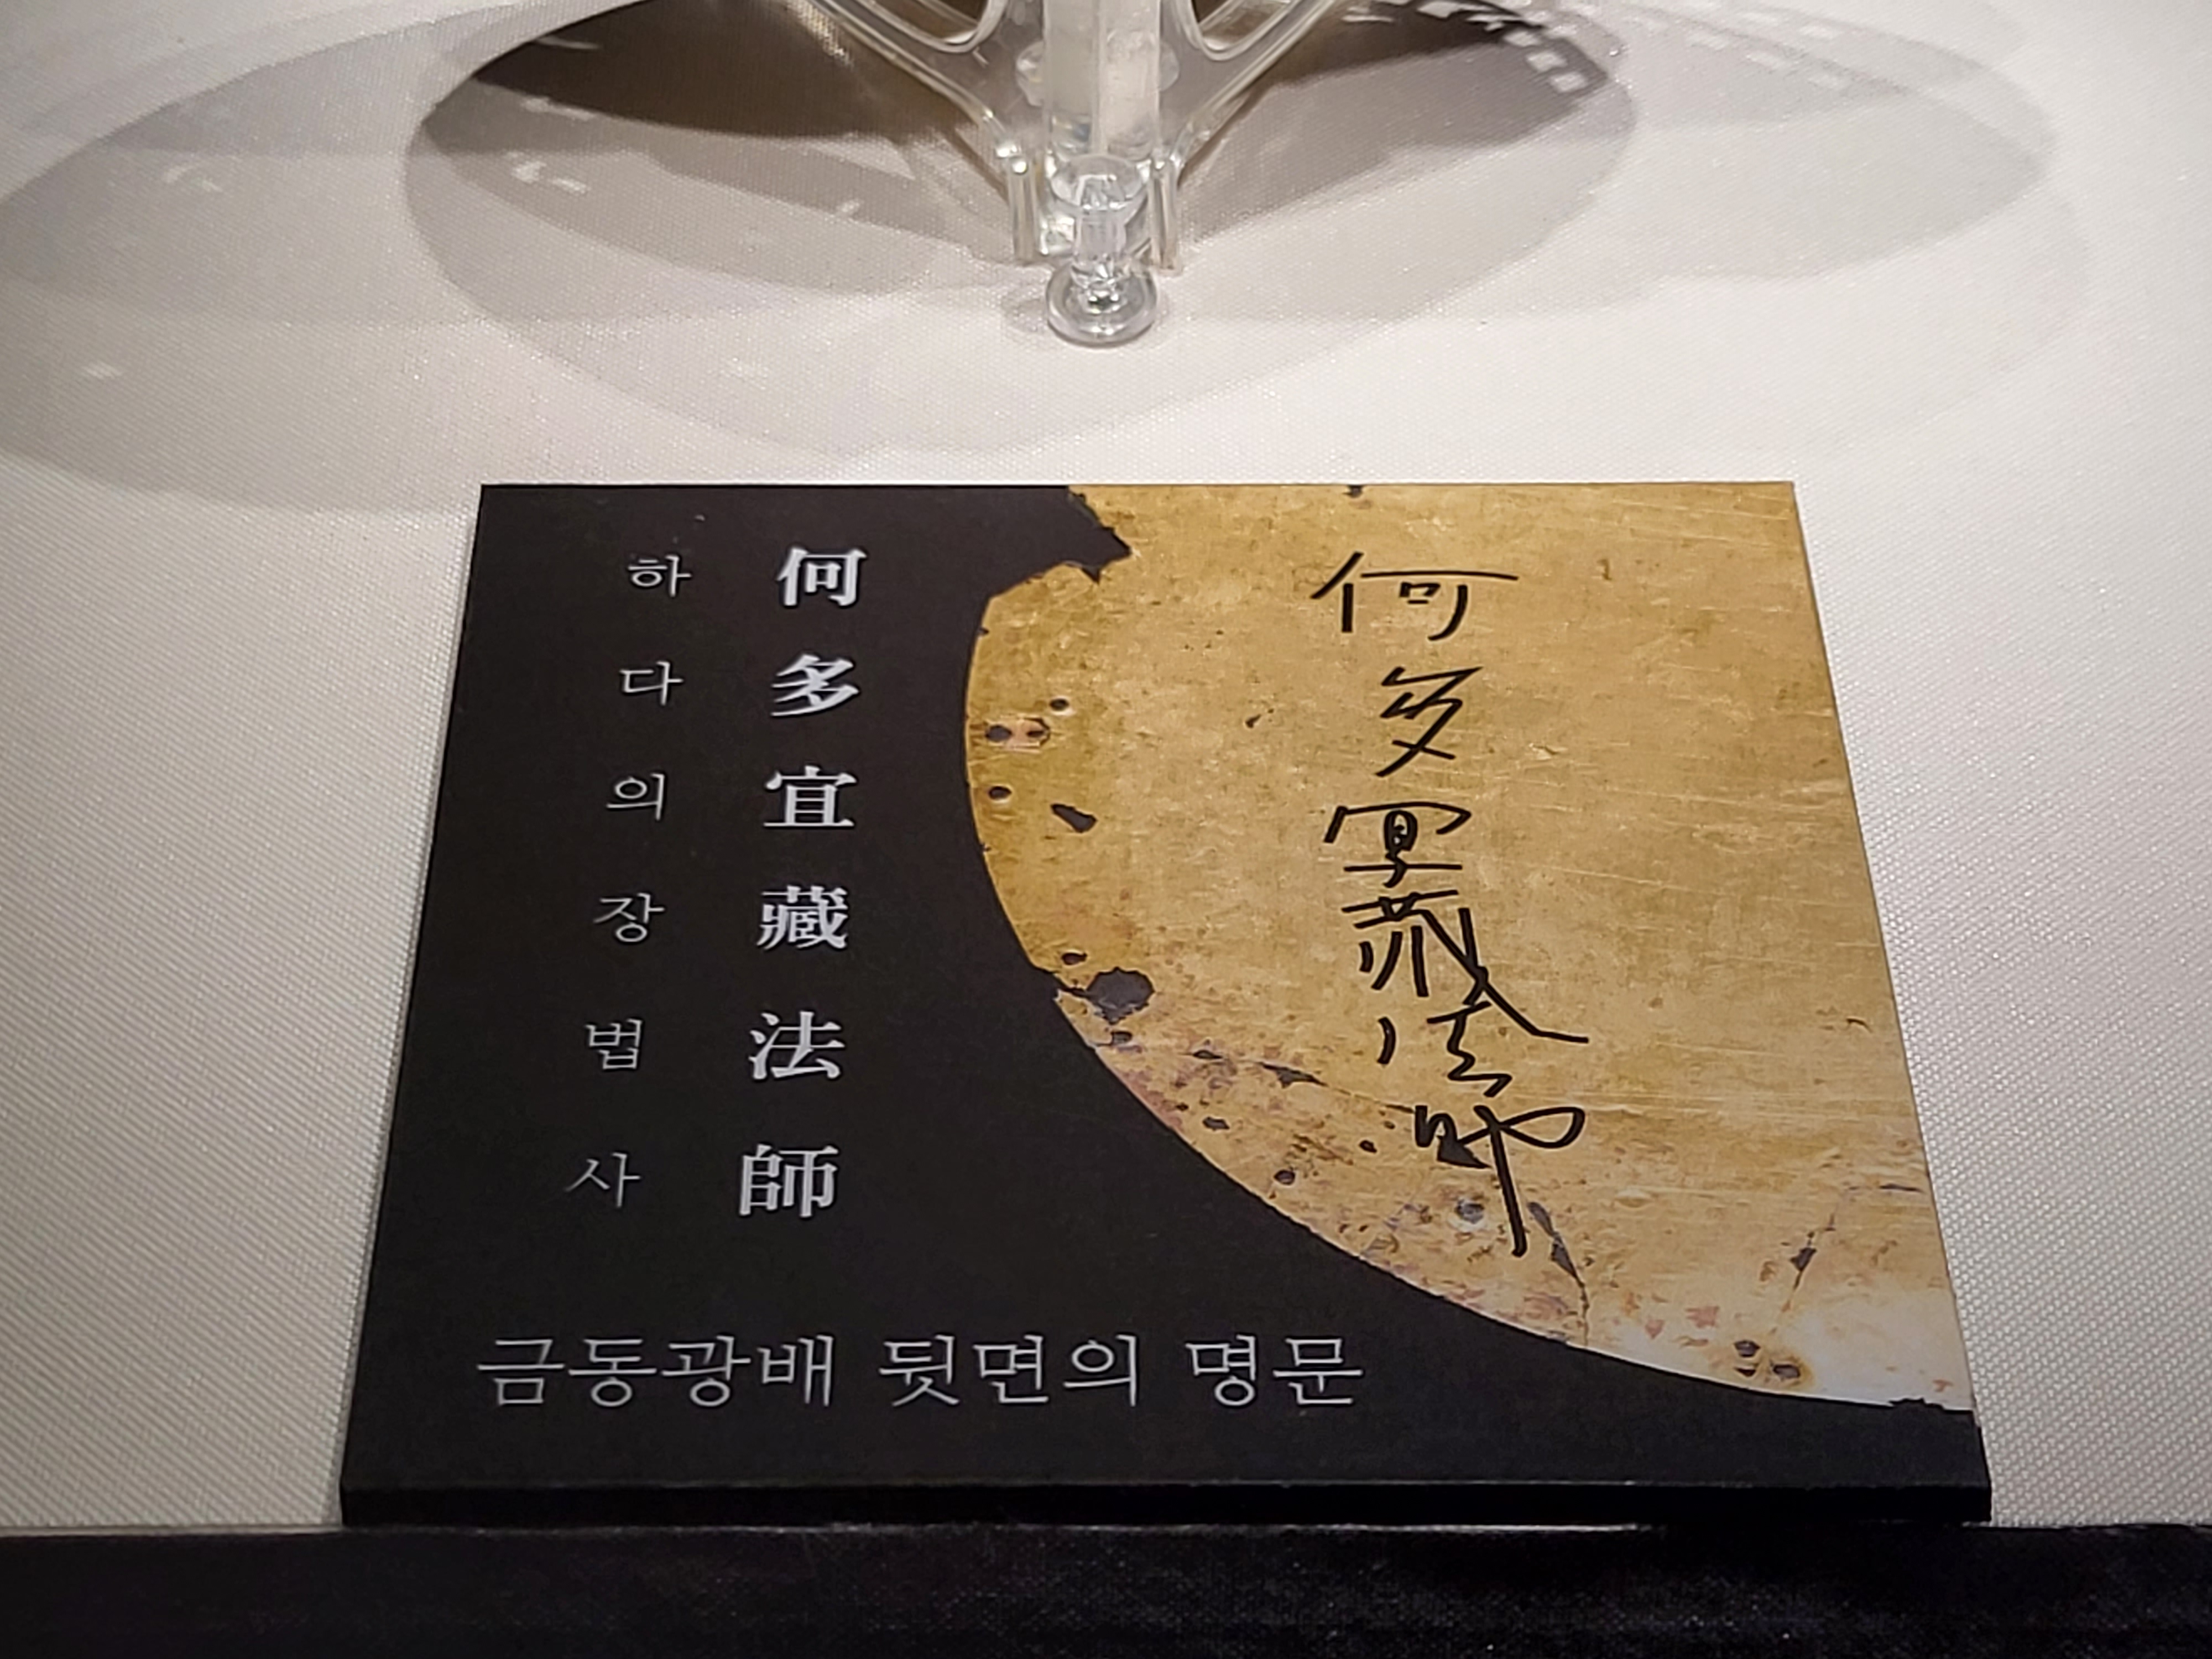 何多宜藏法師
何多宜藏法師
하다의장법사
금동광배 뒷면의 명문